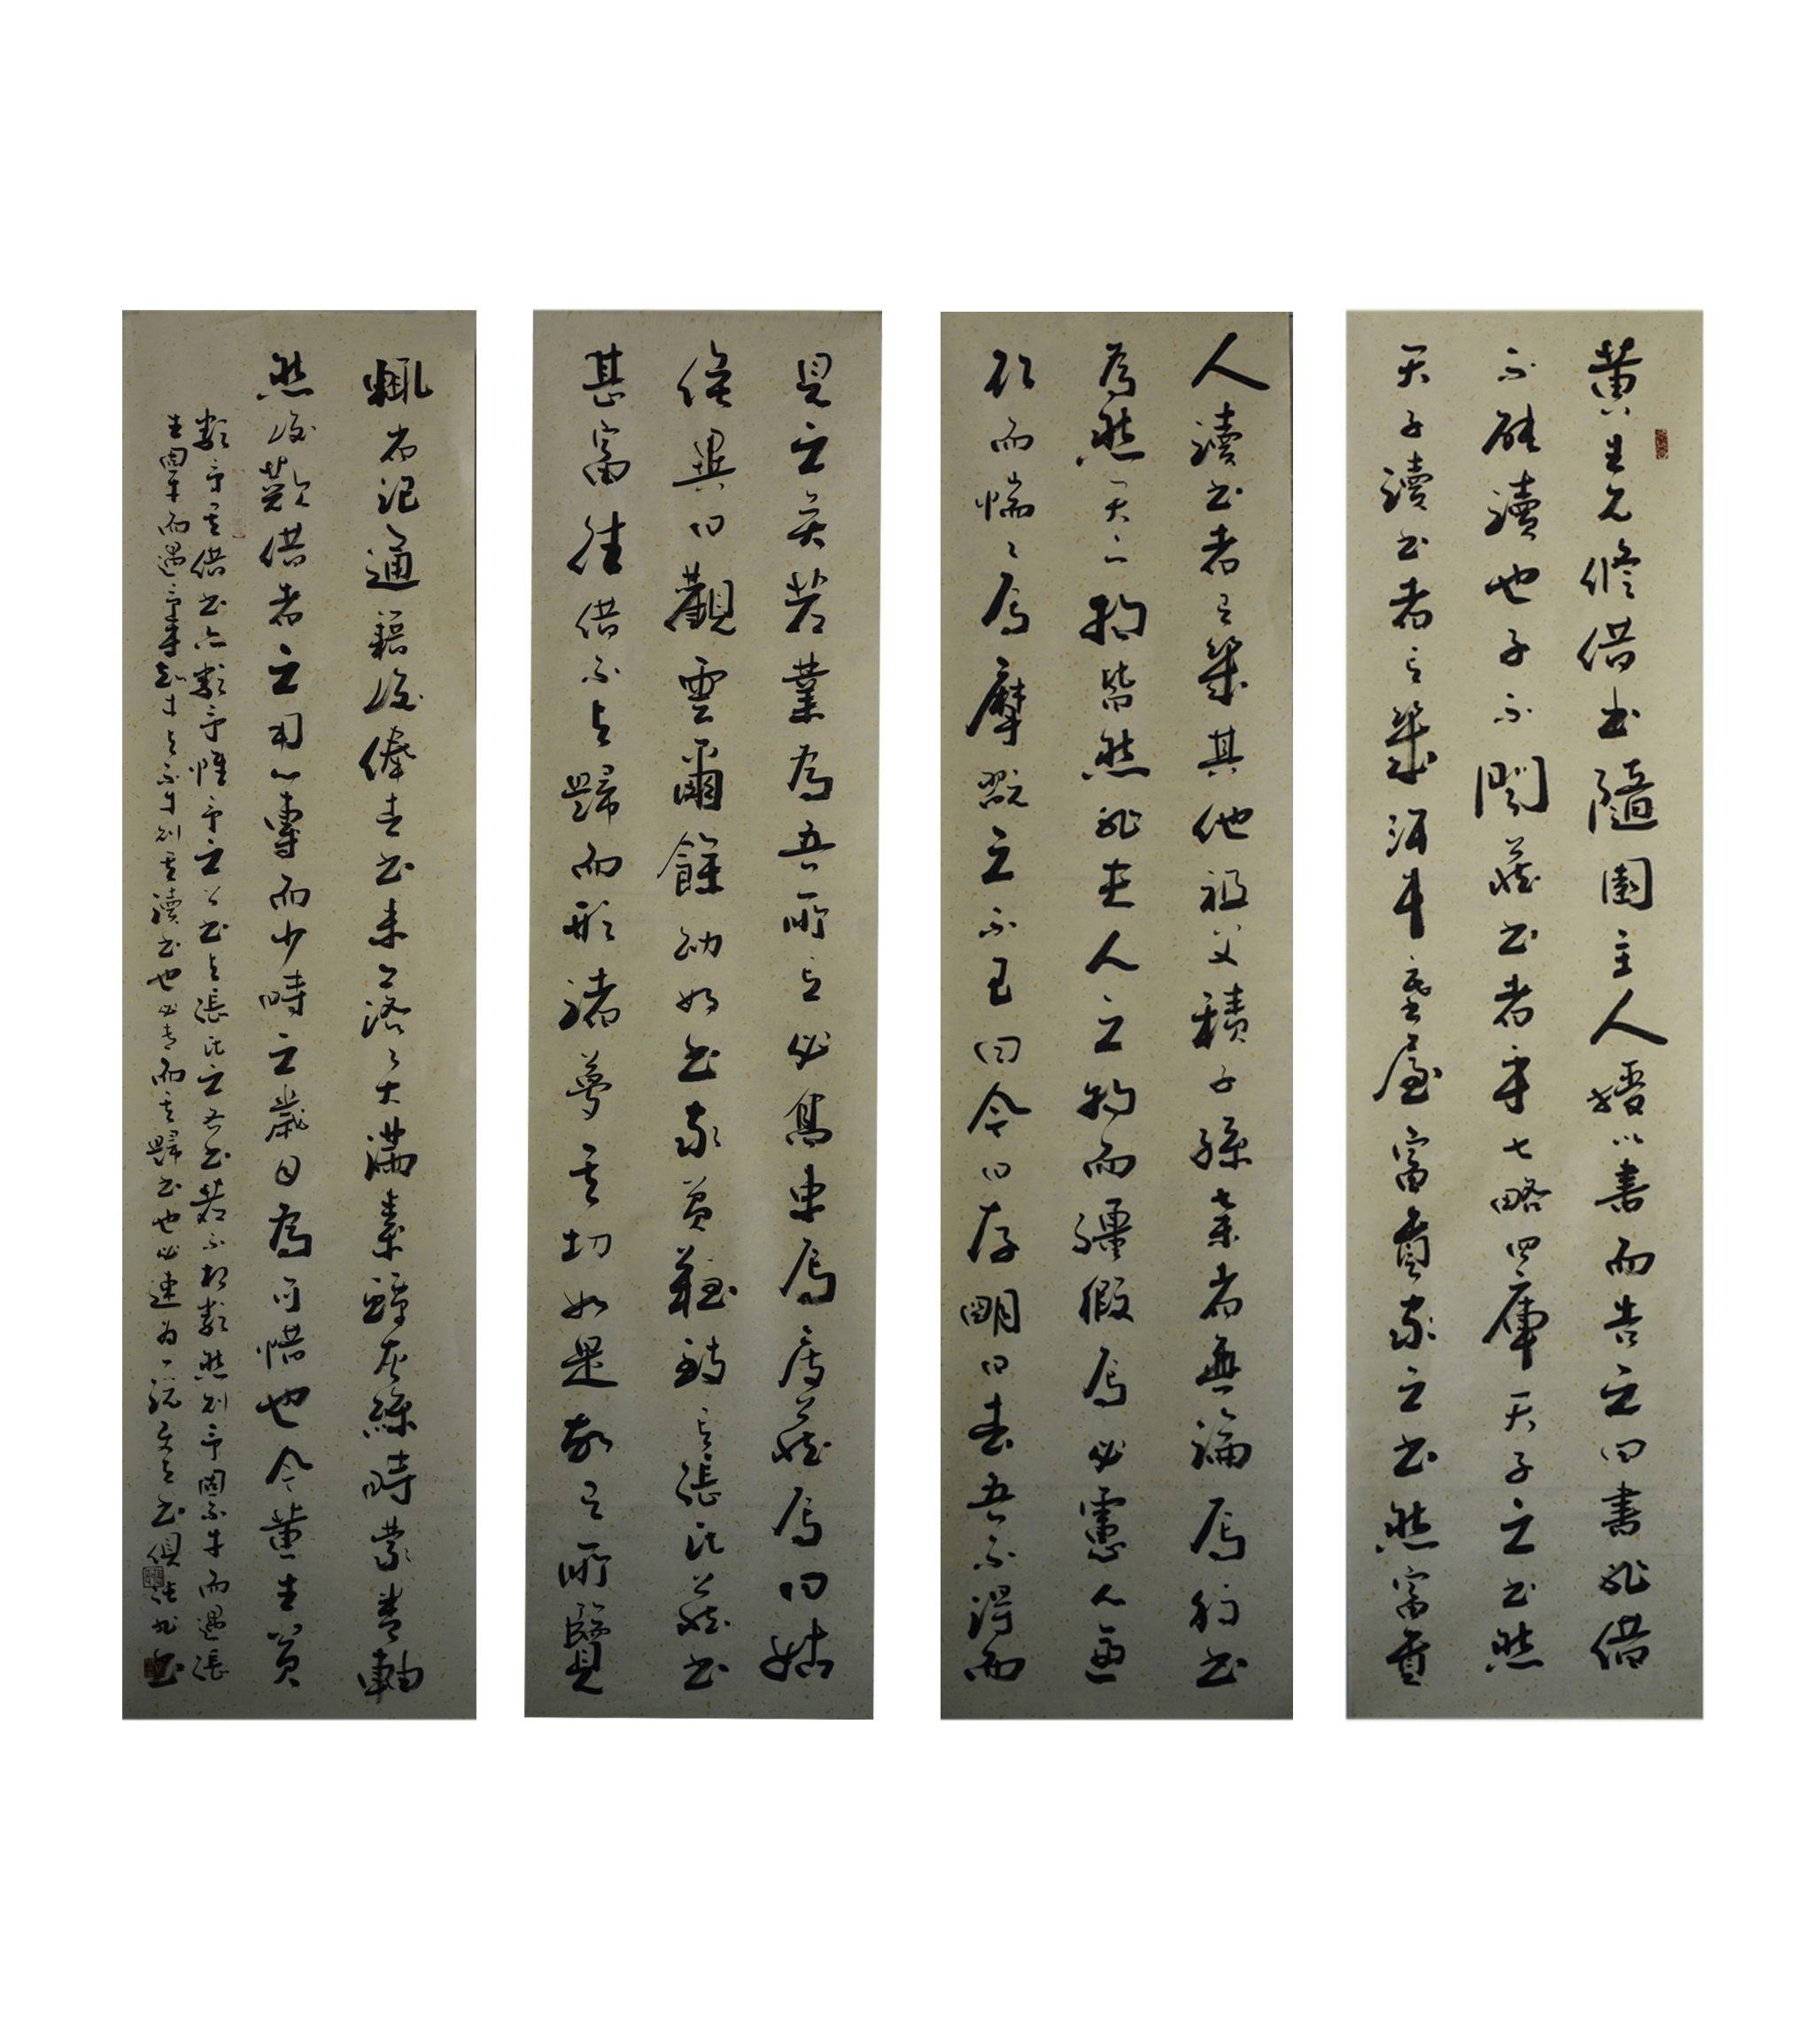 黃生允修借書隨園主人授以書而告之曰書非借
不能讀也子不聞藏書者乎七略四庫天子之書然
天子讀書者有幾汗牛塞屋富貴家之書然富貴
人讀書者有幾其他祖父積子孫棄者無論焉獨書
為然天下物皆然非夫人之物而彊假焉必慮人逼
取而惴惴焉摩翫之不已曰今日存明日去吾不得而
見之矣若業為吾所有必高束焉庋藏焉曰姑
俟異日觀雲爾餘幼好書家貧難致有張氏藏書
甚富往借不與歸而形諸夢其切如是故有所覽
輒省記通籍後俸去書來落落大滿素蟫灰絲時蒙卷軸
然後歎借者之用心專而少時之歲日為可惜也今黃生貧
類予其借書亦類予惟予之公書與張氏之吝書若不相類然則予固不幸而遇張
生固幸而遇予乎知幸與不幸則其讀書也必專而其歸書也必速為一說使與書俱